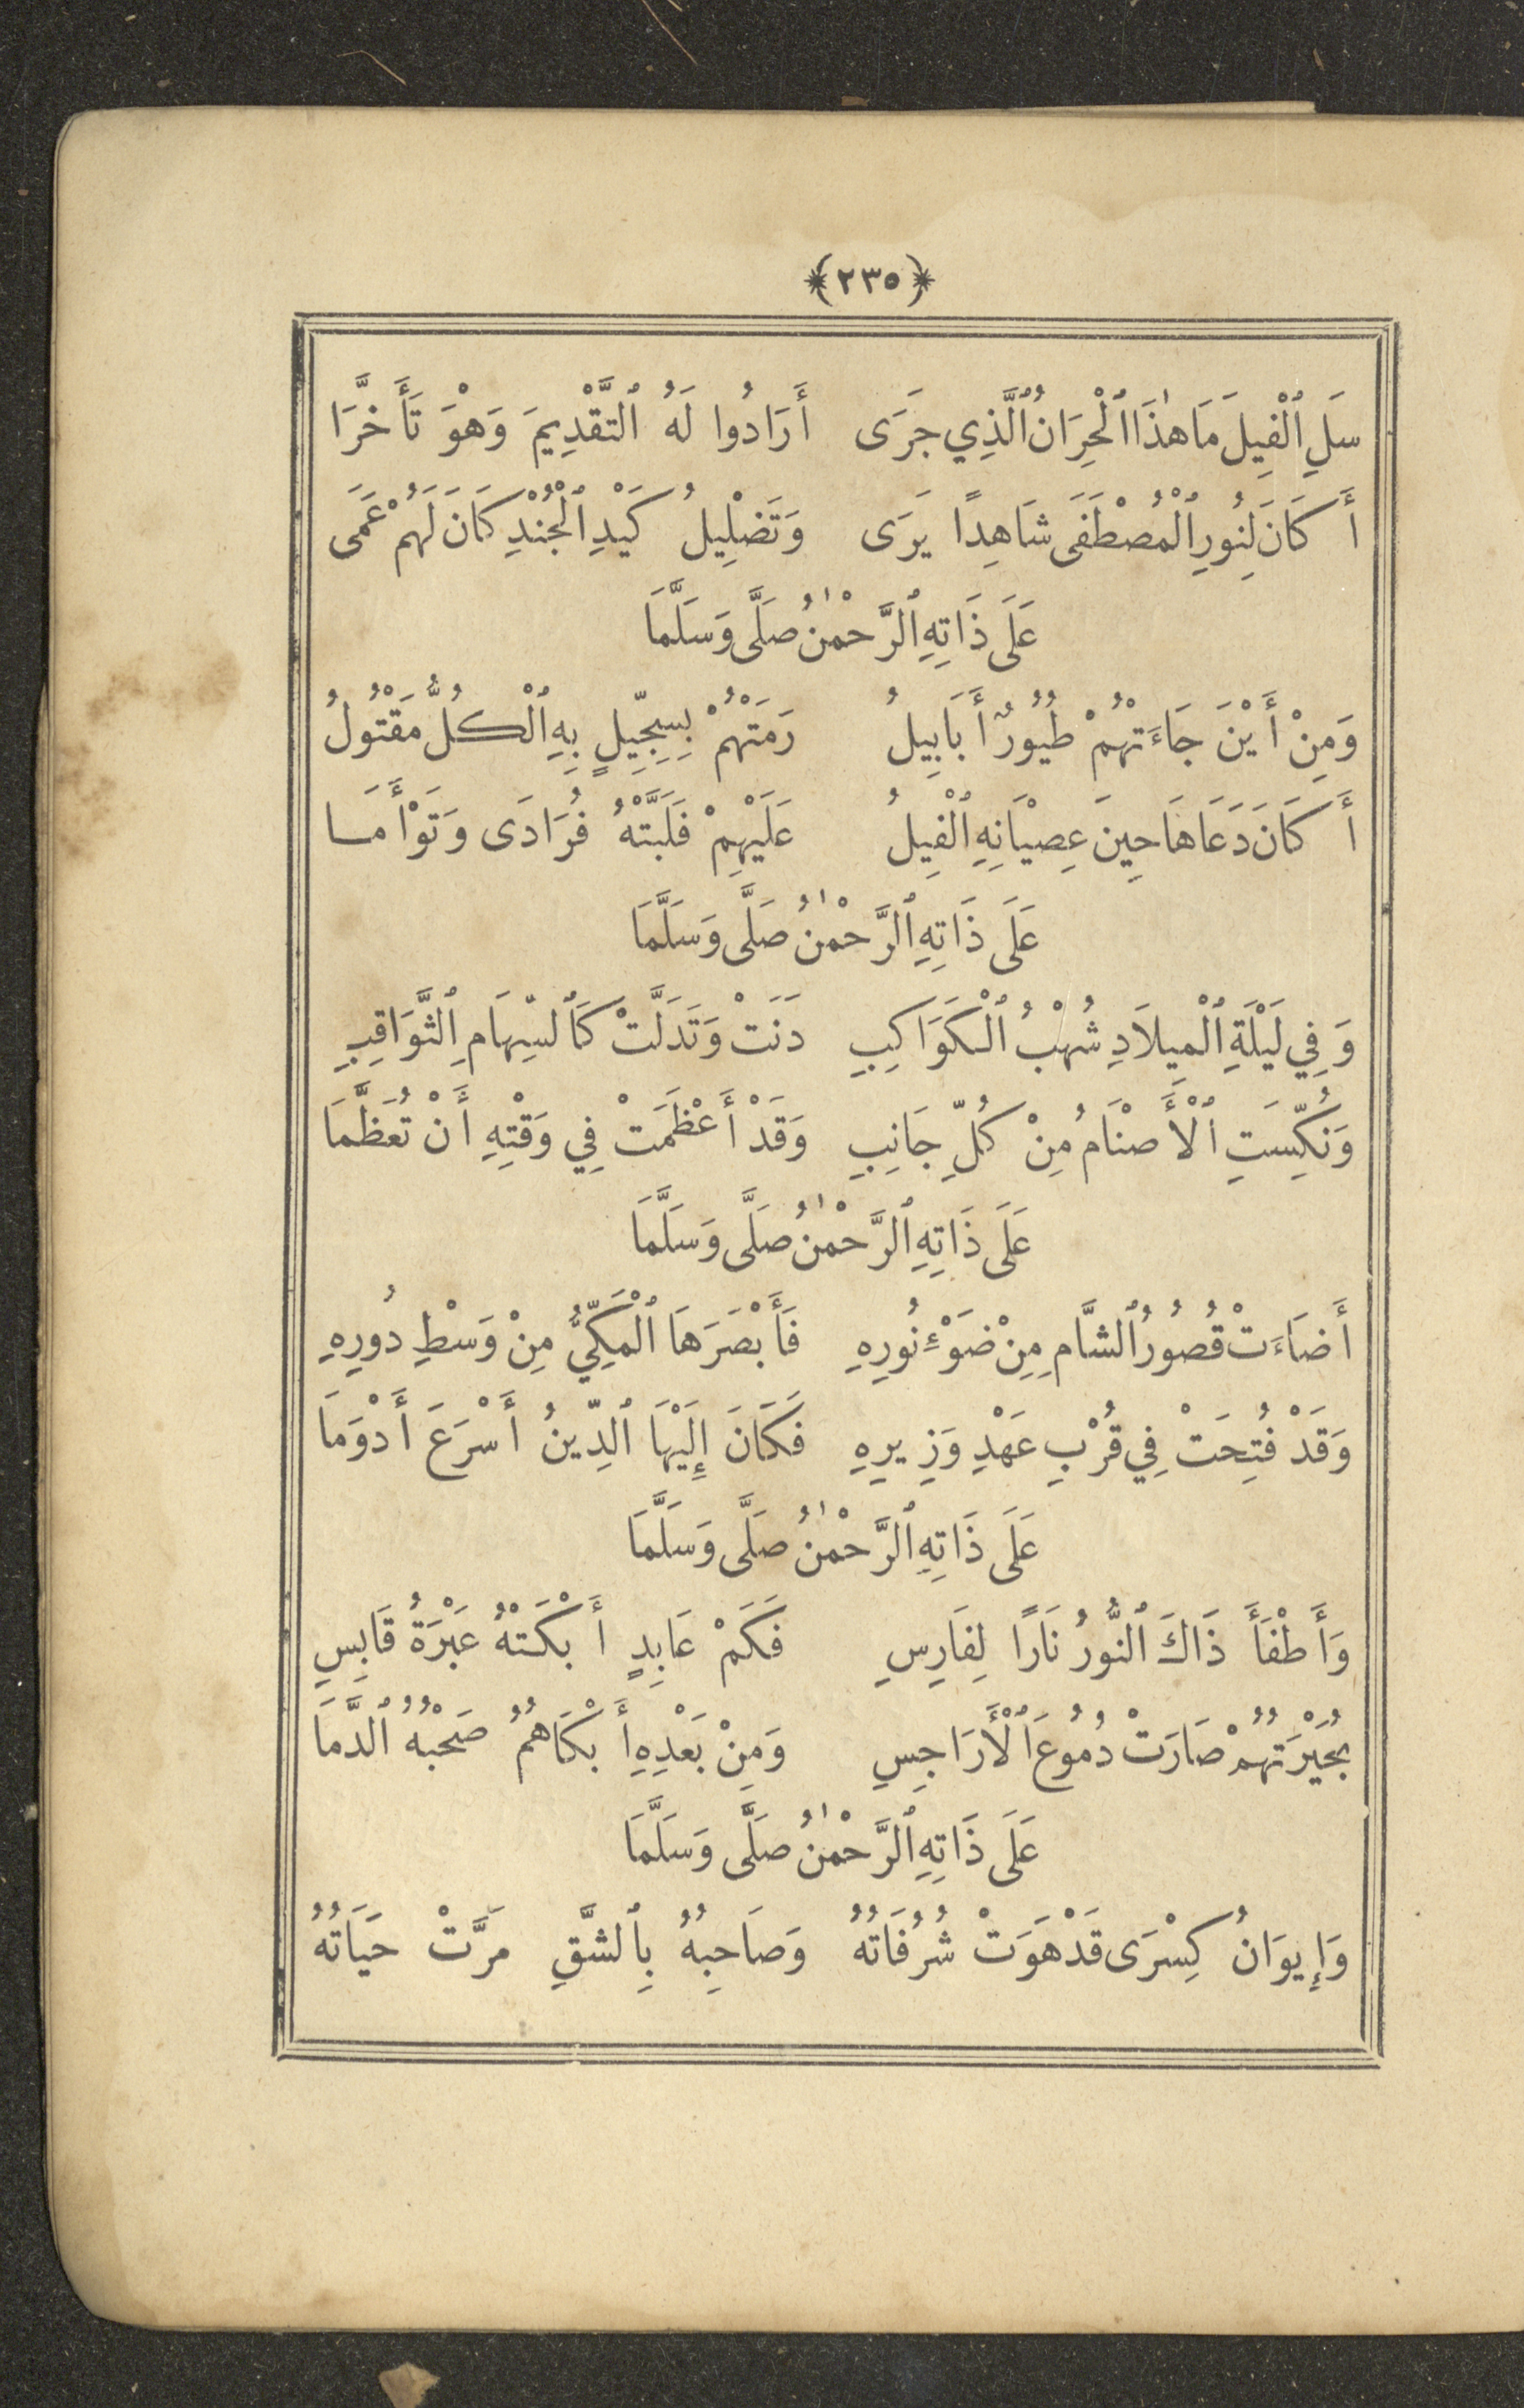 ﴿٢٣٥﴾
سَلِ ٱلْفِيلَ مَا هٰذَا ٱلْحِرَانُ ٱلَّذِي جَرَى أَرَادُوا لَهُ ٱلتَّقْدِيمَ وَهْوَ تَأَخَّرَا
أَكَانَ لِنُورِ ٱلْمُصْطَفَى شَاهِدًا يَرَى وَتَضْلِيلُ كَيْدِ ٱلْجُنْدِ كَانَ لَهُمْ عَمَى
عَلَى ذَاتِهِ ٱلرَّحْمٰنُ صَلَّى وَسَلَّمَا
وَمِنْ أَيْنَ جَاءَتْهُمْ طُيُورٌ أَبَابِيلُ رَمَتْهُمْ بِسِجِّيلٍ بِهِ ٱلْكُلُّ مَقْتُولُ
أَكَانَ دَعَاهَا حِينَ عِصْيَانِهِ ٱلْفِيلُ عَلَيْهِمْ فَلَبَّتْهُ فُرَادَى وَتَوْأَمَا
عَلَى ذَاتِهِ ٱلرَّحْمٰنُ صَلَّى وَسَلَّمَا
وَفِي لَيْلَةِ ٱلْمِيلَادِ شُهْبُ ٱلْكَوَاكِبِ دَنَتْ وَتَدَلَّتْ كَٱلسِّهَامِ ٱلثَّوَاقِبِ
وَنُكِّسَتِ ٱلْأَصْنَامُ مِنْ كُلِّ جَانِبِ وَقَدْ أَعْظَمَتْ فِي وَقْتِهِ أَنْ تُعَظَّمَا
عَلَى ذَاتِهِ ٱلرَّحْمٰنُ صَلَّى وَسَلَّمَا
أَضَاءَتْ قُصُورُ ٱلشَّامِ مِنْ ضَوْءِ نُورِهِ فَأَبْصَرَهَا ٱلْمَكِّيُّ مِنْ وَسْطِ دُورِهِ
وَقَدْ فُتِحَتْ فِي قُرْبِ عَهْدِ وَزِيرِهِ فَكَانَ إِلَيْهَا ٱلدِّينُ أَسْرَعَ أَدْوَمَا
عَلَى ذَاتِهِ ٱلرَّحْمٰنُ صَلَّى وَسَلَّمَا
وَأَطْفَأَ ذَاكَ ٱلنُّورُ نَارًا لِفَارِسِ فَكَمْ عَابِدٍ أَبْكَتْهُ عَبْرَةُ قَابِسِ
بُحَيْرَتُهُمْ صَارَتْ دُمُوعَ ٱلْأَرَاجِسِ وَمِنْ بَعْدِهِ أَبْكَاهُمُ صَحْبُهُ ٱلدَّمَا
عَلَى ذَاتِهِ ٱلرَّحْمٰنُ صَلَّى وَسَلَّمَا
وَإِيوَانُ كِسْرَى قَدْ هَوَتْ شُرُفَاتُهُ وَصَاحِبُهُ بِٱلشَّقِّ مَرَّتْ حَيَاتُهُ